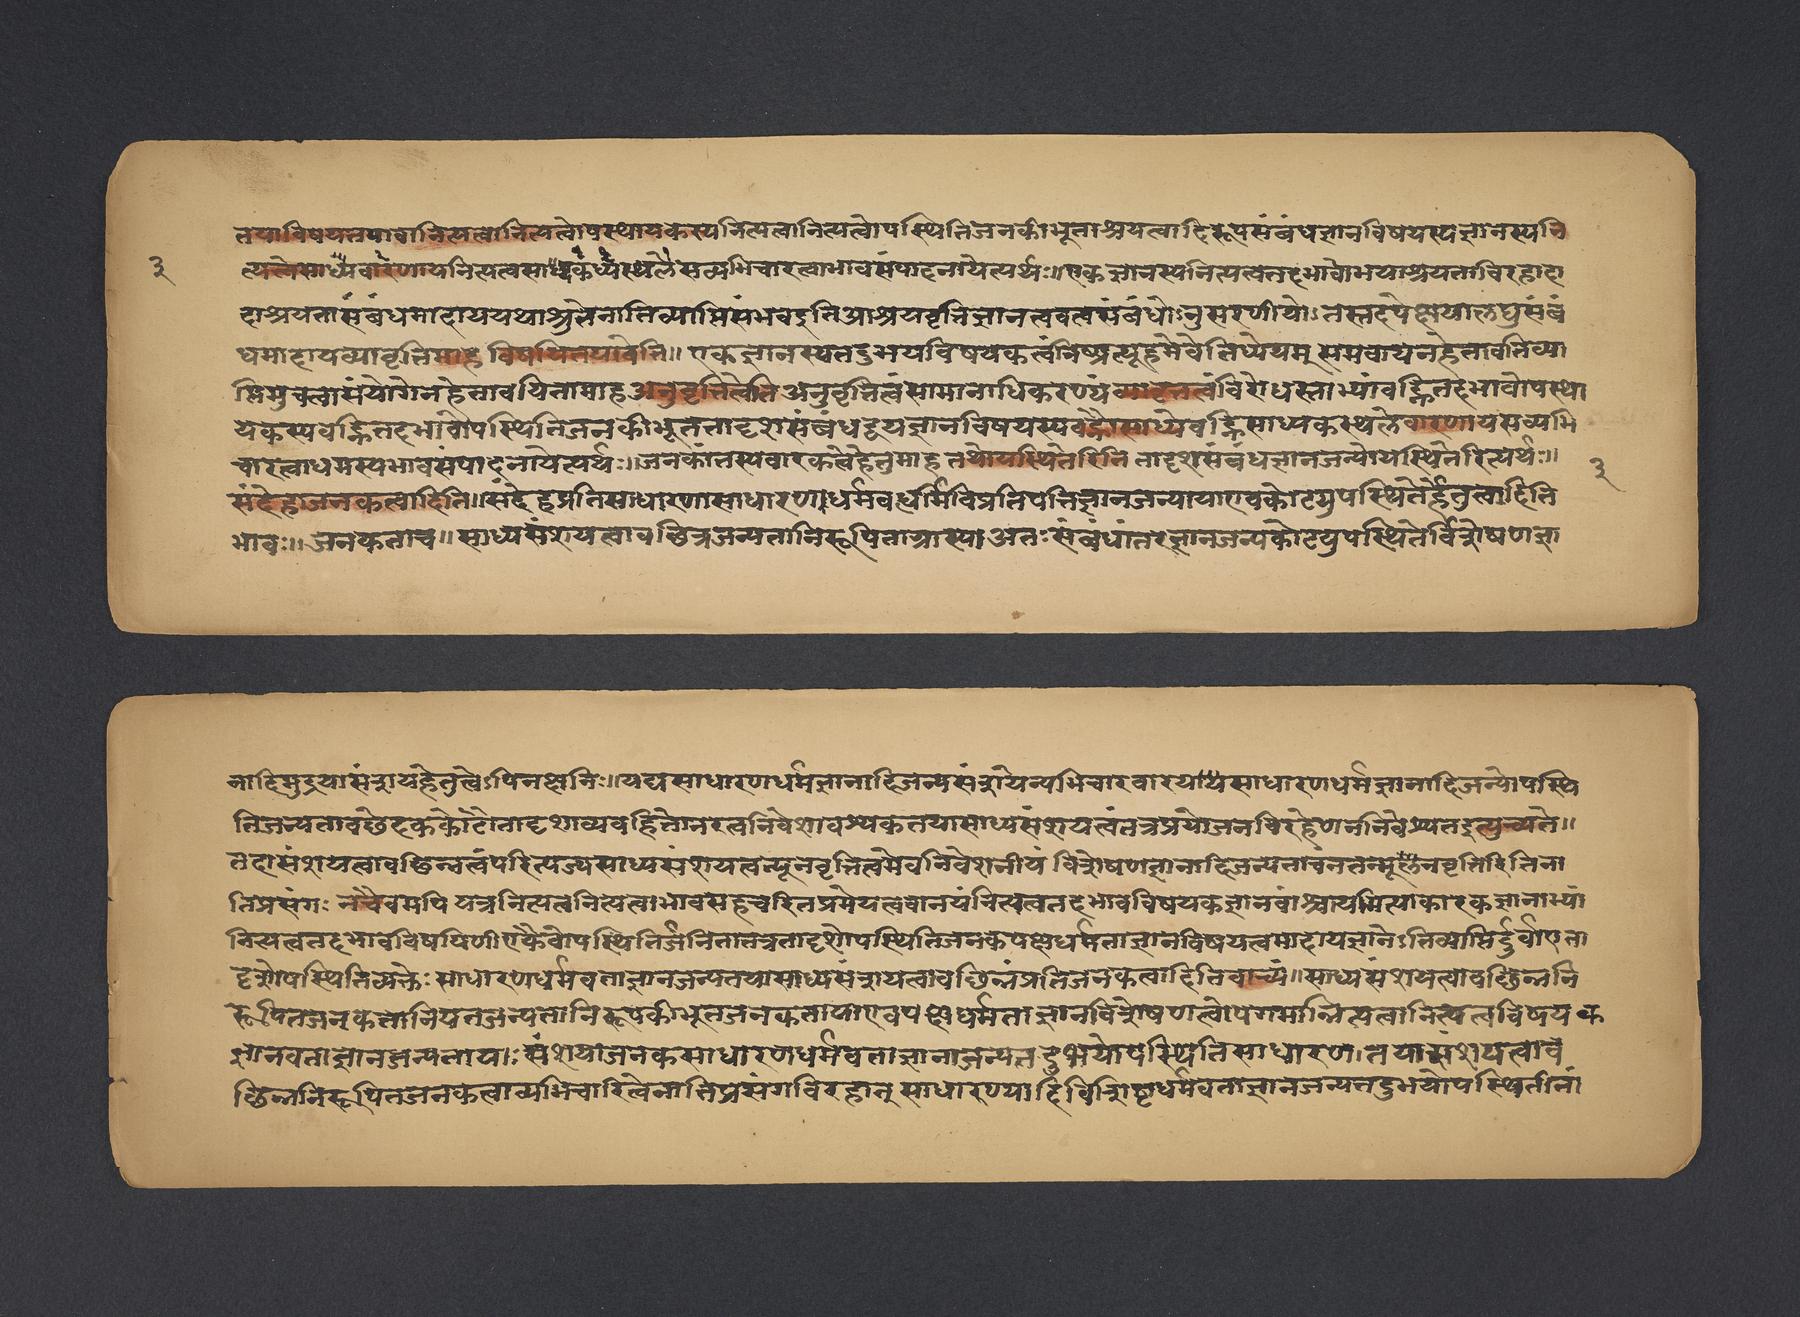 तया विषयतयावानित्यत्वानित्यत्वोपस्थापकस्यनित्यत्वानित्यत्वोपस्थितिजनकीभूताश्रयत्वादिरूपसंबंधज्ञानविषयस्यज्ञानस्यनि
३
त्यत्वेसाध्येवारणायनित्यत्वसाधकस्थलेसव्यभिचारत्वाभावसंपादनायेत्यर्थः॥एकज्ञानस्यनित्यत्वतदभावोभयाश्रयताविरहादा
द्याश्रयतासंबंधमादाययथाश्रुतेनातिव्याप्तिसंभवइतिआश्रयवृत्तिज्ञानत्ववत्वसंबंधोऽनुसरणीयोऽतस्तदपेक्षयालघुसंबं
धमादायव्यावृत्तिमाह विषयितयावेति॥ एकज्ञानस्यतदुभयविषयकत्वंनिष्प्रत्यूहमेवेतिध्येयम् समवायेनहेतावतिव्या
प्तिमुक्त्वासंयोगेनहेतावपितामाह अनुवृत्तित्वेति अनुवृत्तित्वंसामानाधिकरण्यंव्यावृत्तत्वंविरोधस्ताभ्यांवह्नितदभावोपस्था
पकस्यवह्नितदभावोपस्थितिजनकीभूततादृशसंबंधद्वयज्ञानविषयस्यवह्नौसाध्येवह्निसाध्यकस्थलेवारणायसव्यभि
चारत्वाधमस्यभावसंपादनायेत्यर्थः॥जनकांतस्यवारकत्वेहेतुमाह तथोपस्थितेरिति तादृशसंबंधज्ञानजन्योपस्थितेरित्यर्थः॥
३
संदेहाजनकत्वादिति॥संदेहंप्रतिसाधारणासाधारणधर्मवद्धर्मिविप्रतिपत्तिज्ञानजन्यायाएवकोट्युपस्थितेर्हेतुत्वादिति
भावः॥ जनकताच॥ साध्यसंशयत्वावछिन्नजन्यतानिरूपिताग्रास्या अतःसंबंधांतरज्ञानजन्यकोट्युपस्थितेर्विशेषणज्ञा
नादिमुद्रयासंशयहेतुत्वेऽपिनक्षतिः॥यद्यसाधारणधर्मज्ञानादिजन्यसंशयेन्यभिचारवारणायसाधारणधर्मज्ञानादिजन्योपस्थि
तिजन्यतावछेदककोटौतादृशाव्यवहितोत्तरत्वनिवेशावश्यकतयासाध्यसंशयत्वंतत्रप्रयोजनविरहेणननिवेश्यतइत्युच्यते॥
तदासंशयत्वावछिन्नत्वंपरित्यज्यसाध्यसंशयत्वन्यूनवृत्तित्वमेवनिवेशनीयं विशेषणज्ञानादिजन्यताचनतन्न्यूनवृत्तिरितिना
तिप्रसंगः नचैवमपि यत्रनित्यत्वनित्यत्वाभावसहचरितप्रमेयत्ववानयंनित्यत्वतदभावविषयकज्ञानवांश्चायमित्याकारकज्ञानाभ्यां
नित्यत्वतदभावविषयिणीएकैवोपस्थितिर्जनितातत्रतादृशोपस्थितिजनकपक्षधर्मताज्ञानविषयत्वमादायज्ञानेऽतिव्याप्तिर्दुर्वाराएता
दृशोपस्थितिव्यक्तेः साधारणधर्मवत्ताज्ञानजन्यतयासाध्यसंशयत्वावछिन्नंप्रतिजनकत्वादितिवाच्यं॥साध्यसंशयत्वावछिन्ननि
रूपितजनकतानियतजन्यतानिरूपकीभूतजनकतायाएवपक्षधर्मताज्ञानविशेषणत्वोपगमान्नित्यत्वानित्यत्वविषयक
ज्ञानवत्ताज्ञानजन्यतायाः संशयाजनकसाधारणधर्मवत्ताज्ञानाजन्यतदुभयोपस्थितिसाधारणतयासंशयत्वाव
छिन्ननिरूपितजनकत्वाव्यभिचारित्वेनातिप्रसंगविरहात् साधारण्यादिविशिष्टधर्मवत्ताज्ञानजन्यतदुभयोपस्थितीनां